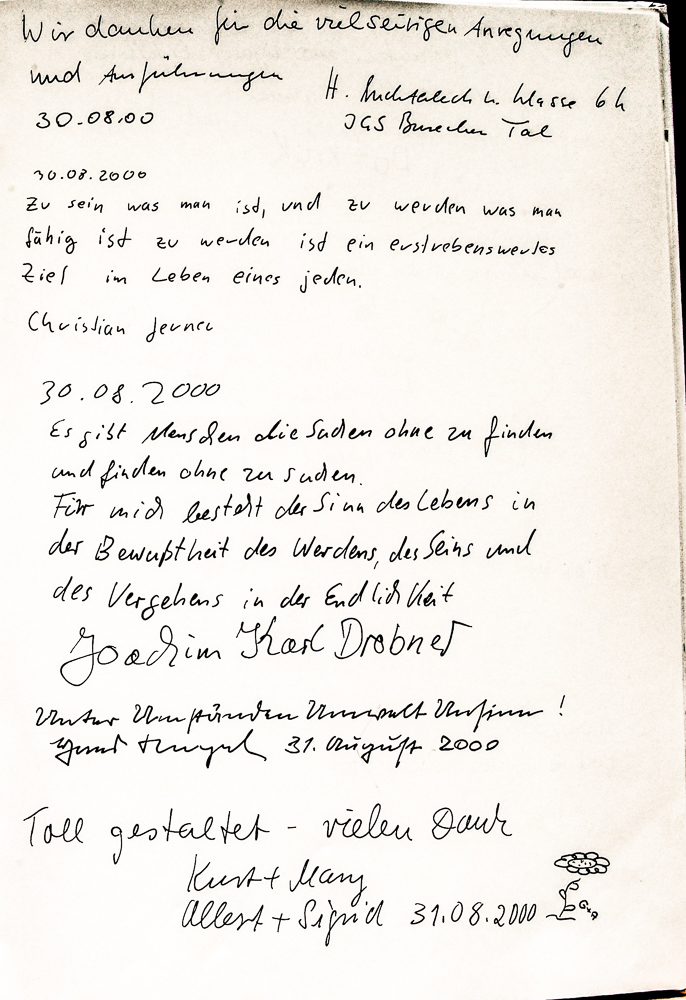 Wir danken für die vielseitigen Anregungen
und Ausführungen
H. u. Klasse 6h
30.08.00
IGS Tal
30.08.2000
Zu sein was man ist, und zu werden was man
fähig ist zu werden ist ein erstrebenswertes
Ziel im Leben eines jeden.
Christian
30.08.2000
Es gibt Menschen die suchen ohne zu finden
und finden ohne zu suchen.
Für mich besteht der Sinn des Lebens in
der Bewußtheit des Werdens, des Seins und
des Vergehens in der Endlichkeit
Joachim Karl Drobner
Unter Umständen Umwelt Unsinn !
31. August 2000
Toll gestaltet - vielen Dank
Kurt + Mary
Albert + Sigrid 31.08.2000